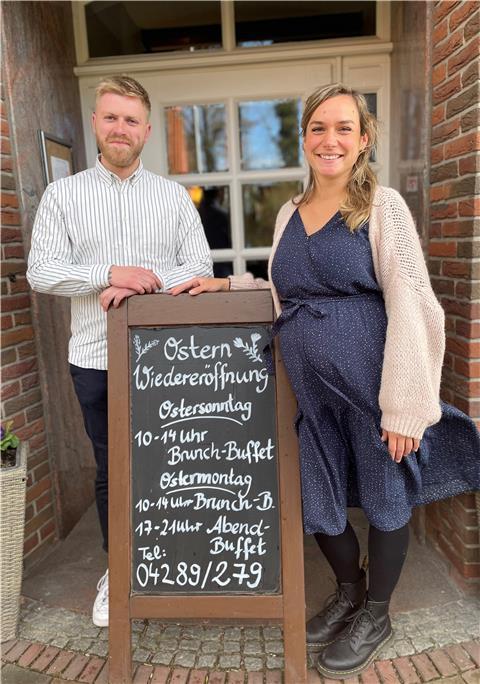 Ostern
Wiedereröffnung
Ostersonntag
10-14 Uhr
Brunch-Buffet
Ostermontag
10-14 Uhr Brunch-B.
17-21 Uhr Abend-
Buffet
Tel:
04289/279